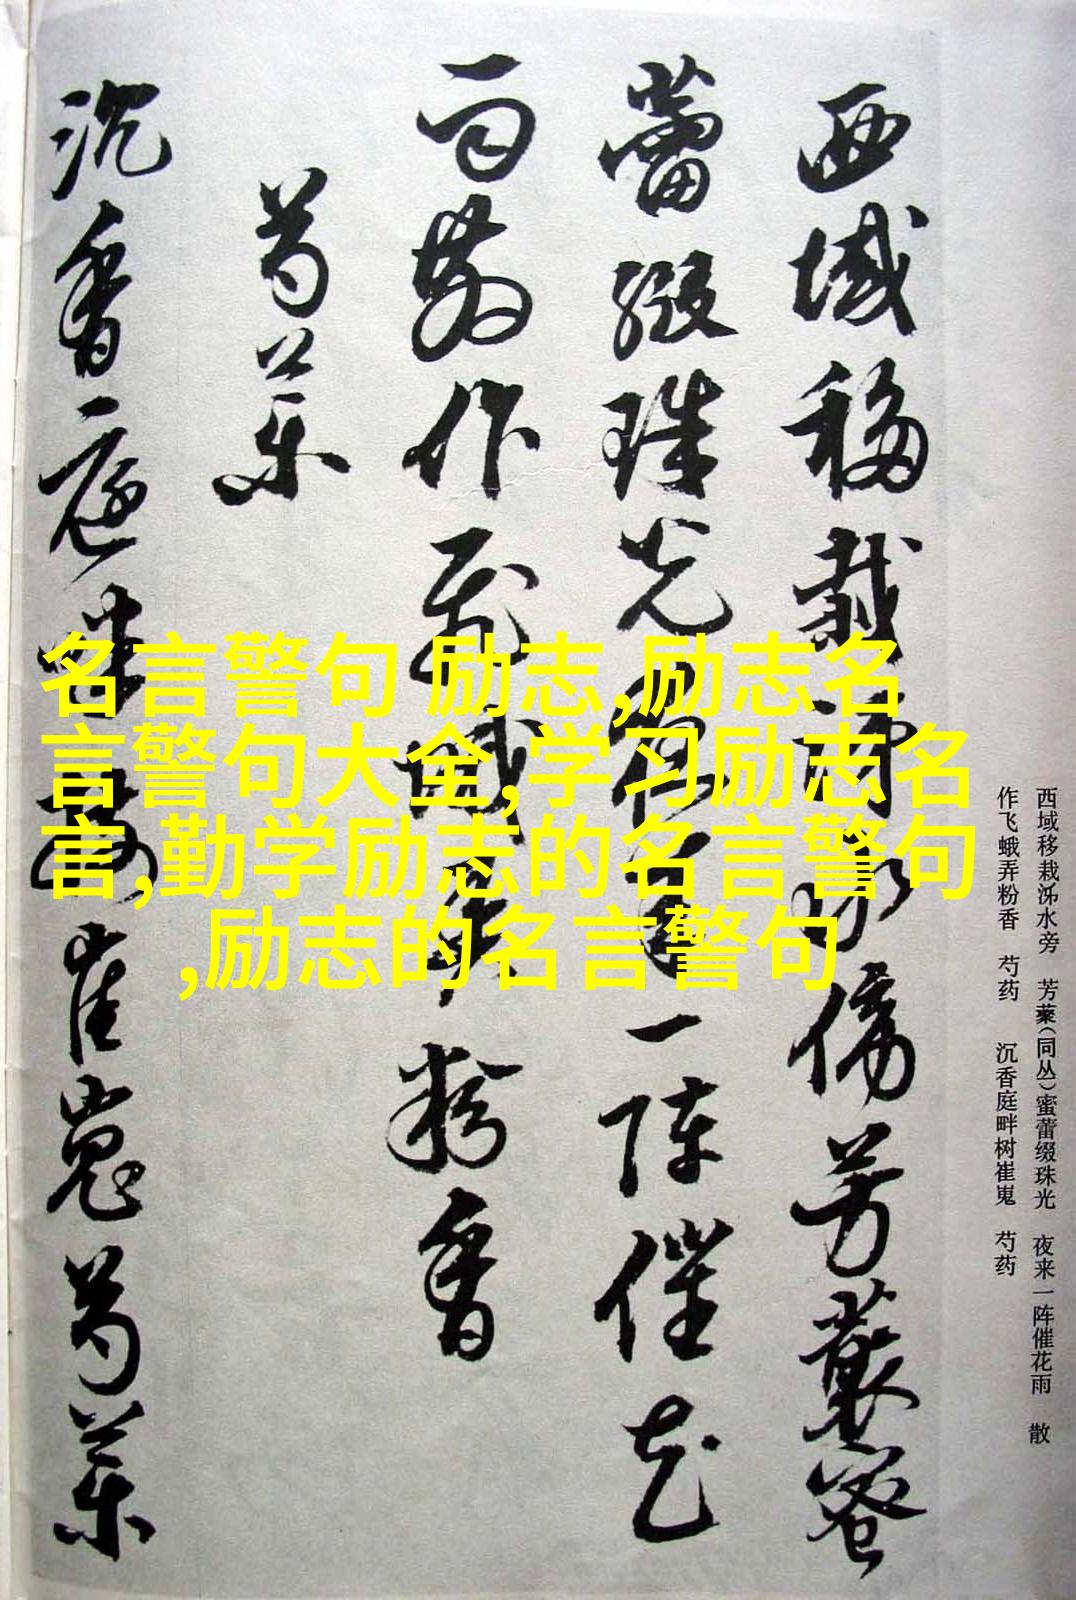 西域移栽泲水旁　芳藂(同丛)蜜蕾缀珠光　夜来一阵催花雨　散
作飞蛾弄粉香　芍药　沉香庭畔树崔嵬　芍药
西域移栽泲水傍芳藂蜜
蕾綴珠光夜来一陣催花
雨散作飛蛾弄粉香
芍藥
沉香庭畔樹崔嵬芍藥
名言警句 励志,励志名
言警句大全,学习励志名
言,勤学励志的名言警句
,励志的名言警句